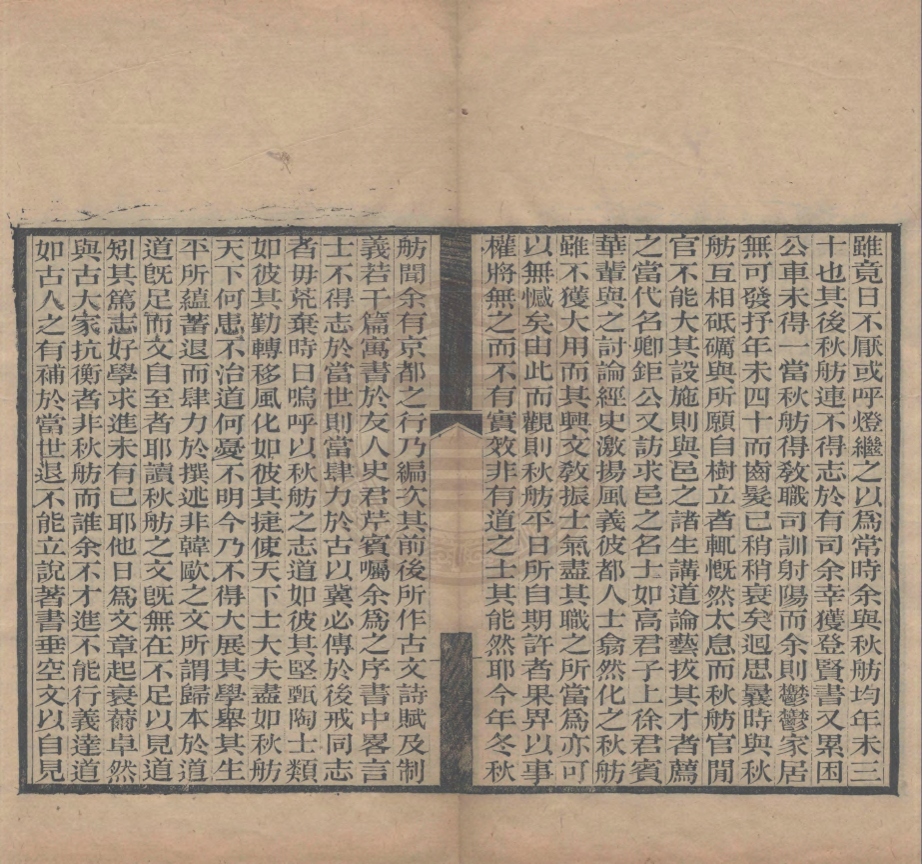 雖竟日不厭或呼燈繼之以爲常時余與秋舫均年未三
十也其後秋舫連不得志於有司余幸獲登賢書又累困
公車未得一當秋舫得敎職司訓射陽而余則鬱鬱家居
無可發抒年未四十而齒髮已稍稍衰矣迴思曩時與秋
舫互相砥礪與所願自樹立者輒慨然太息而秋舫官閒
官不能大其設施則與邑之諸生講道論藝拔其才者薦
之當代名卿鉅公又訪求邑之名士如高君子上徐君賓
華輩與之討論經史激揚風義彼都人士翕然化之秋舫
雖不獲大用而其興文敎振士氣盡其職之所當爲亦可
以無憾矣由此而觀則秋舫平日所自期許者果畀以事
權將無之而不有實效非有道之士其能然耶今年冬秋
舫聞余有京都之行乃編次其前後所作古文詩賦及制
義若干篇寓書於友人史君芹賓囑余爲之序書中畧言
士不得志於當世則當肆力於古以冀必傳於後戒同志
者毋荒棄時日嗚呼以秋舫之志道如彼其堅甄陶士類
如彼其勤轉移風化如彼其捷使天下士大夫盡如秋舫
天下何患不治道何憂不明今乃不得大展其學舉其生
平所蘊蓄退而肆力於撰述非韓歐之文所謂歸本於道
道旣足而文自至者耶讀秋舫之文旣無在不足以見道
矧其篤志好學求進未有已耶他日爲文章起衰薾卓然
與古大家抗衡者非秋舫而誰余不才進不能行義達道
如古人之有補於當世退不能立說著書垂空文以自見